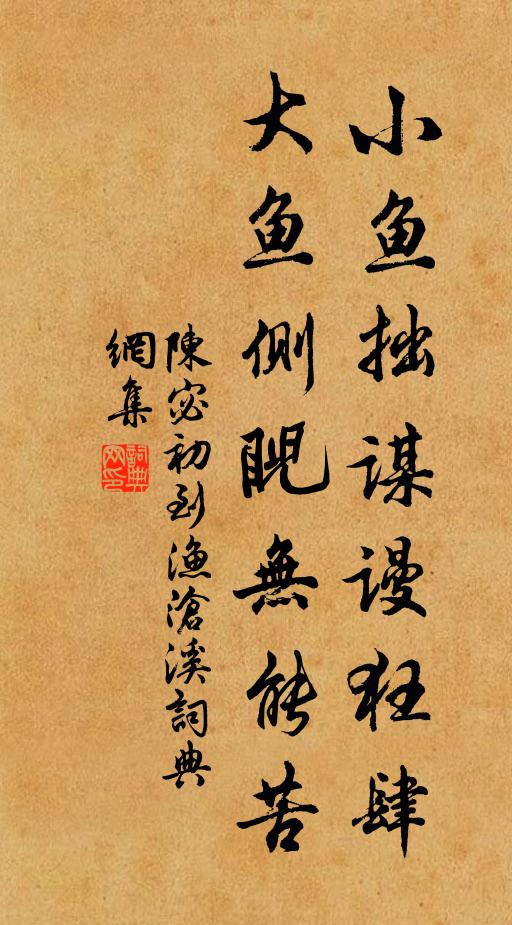 小鱼拙谋謾狂肆
大鱼側睨無能苦
陳宓初到漁滄溪詞典
網集
詞典
网印